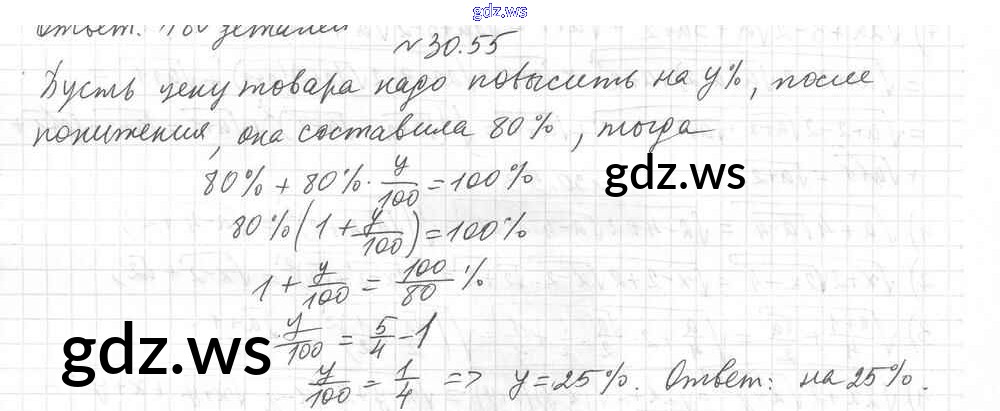 gdz.ws
Ответ: 180 деталей
№30.55
Пусть цену товара надо повысить на y%, после
понижения, она составила 80%, тогда
80% + 80% · y/100 = 100%
gdz.ws
80% (1 + y/100) = 100%
1 + y/100 = 100/80 %
y/100 = 5/4 - 1
gdz.ws
y/100 = 1/4 => y = 25%. Ответ: на 25%.